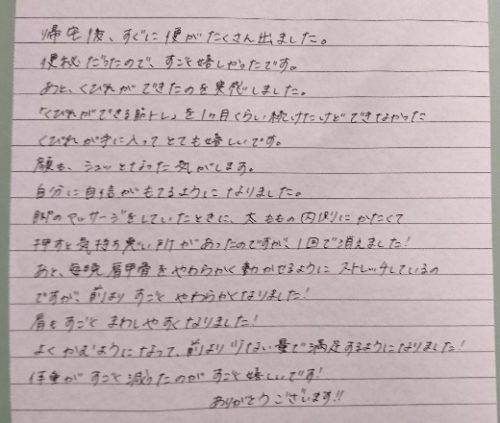 帰宅後、すぐに便がたくさん出ました。
便秘だったので、すごく嬉しかったです。
あと、くびれができたのを実感しました。
「くびれができる筋トレ」を1ヶ月くらい続けたけどできなかった
くびれが手に入ってとても嬉しいです。
顔も、シュッとなった気がします。
自分に自信がもてるようになりました。
脚のマッサージをしていたときに、太ももの内側にかたくて
押すと気持ち悪い所があったのですが、1回で消えました!
あと、毎晩肩甲骨をやわらかく動かせるようにストレッチしているの
ですが、前よりすごくやわらかくなりました!
肩もすごくまわしやすくなりました!
よくかむようになって、前より少ない量で満足するようになりました!
体重がすごく減ったのがすごく嬉しいです!
ありがとうございます!!